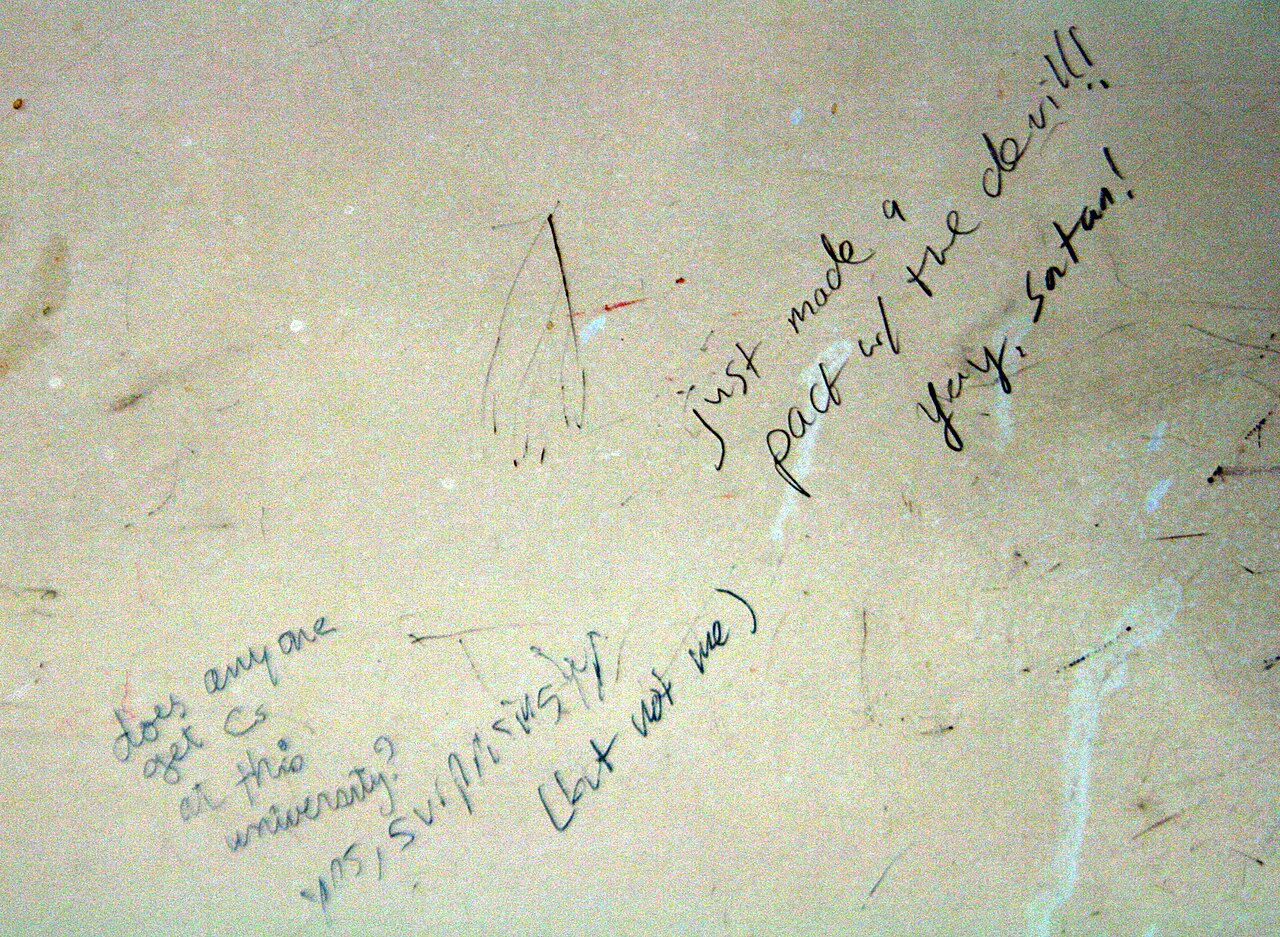 just made a
pact w/ the devil!!
yay, santan!
does anyone
get Cs
at this
university?
yes, surprisingly,
(but not me)